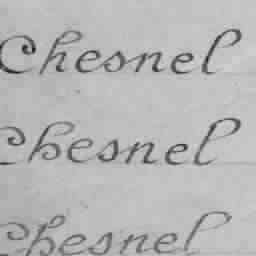 Chesnel
Chesnel
Chesnel